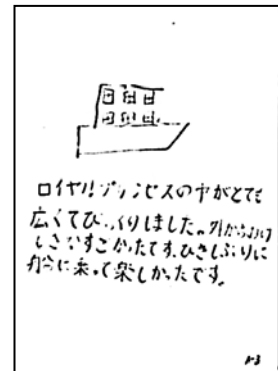 ロイヤルプリンセスの中がとても
広くてびっくりしました。外からみる
しきがすごかったです。ひさしぶりに
船に乗って楽しかったです。